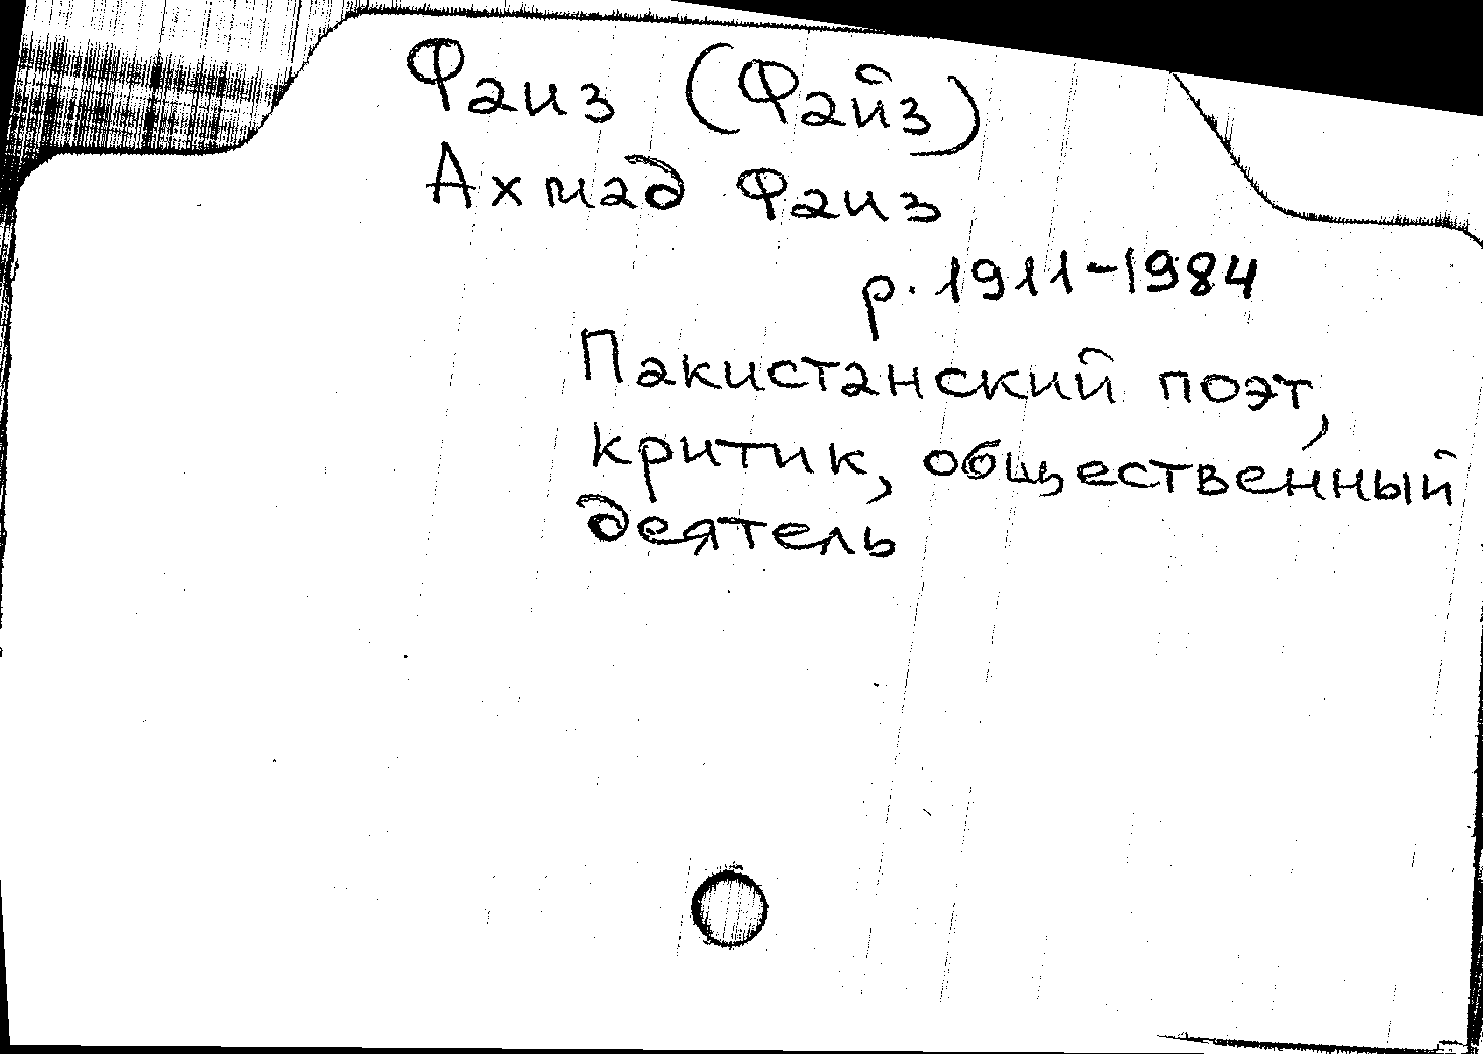 Фаиз (Файз)
Ахмад Фаиз
р. 1911-1984
Пакистанский поэт,
критик, общественный
деятель